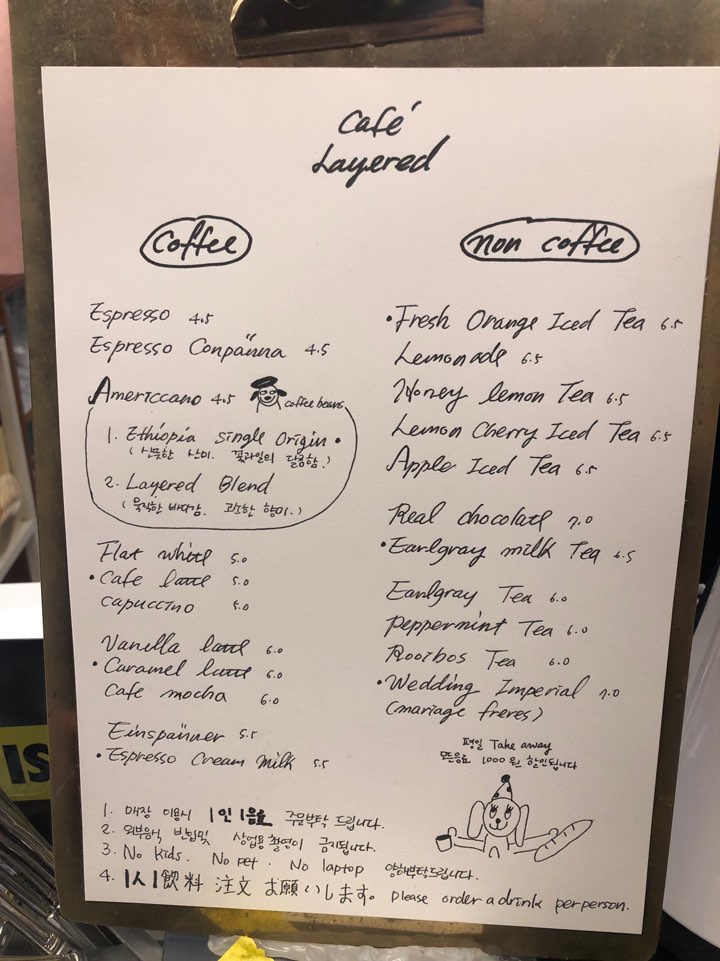 Café
Layered
Coffee
Espresso 4.5
Espresso Conpänna 4.5
Americcano 4.5 coffee beans
1. Ethiopia Single Origin •
( 산뜻한 산미. 꽃과일의 달콤함. )
2. Layered Blend
( 묵직한 바디감. 고소한 향미. )
Flat white 5.0
• Cafe latte 5.0
capuccino 5.0
Vanilla latte 6.0
• Caramel latte 6.0
Cafe mocha 6.0
Einspänner 5.5
• Espresso Cream Milk 5.5
non coffee
• Fresh Orange Iced Tea 6.5
Lemonade 6.5
Honey lemon Tea 6.5
Lemon Cherry Iced Tea 6.5
Apple Iced Tea 6.5
Real chocolate 7.0
• Earlgray milk Tea 6.5
Earlgray Tea 6.0
Peppermint Tea 6.0
Rooibos Tea 6.0
• Wedding Imperial 7.0
(mariage freres)
평일 Take away
모든음료 1000원 할인됩니다
1. 매장 이용시 1인 1음료 주문부탁 드립니다.
2. 외부음식 반입및 상업용 촬영이 금지됩니다.
3. No kids. No pet. No laptop 양해부탁드립니다.
4. 1人1飲料 注文 お願いします。 Please order a drink per person.
IS